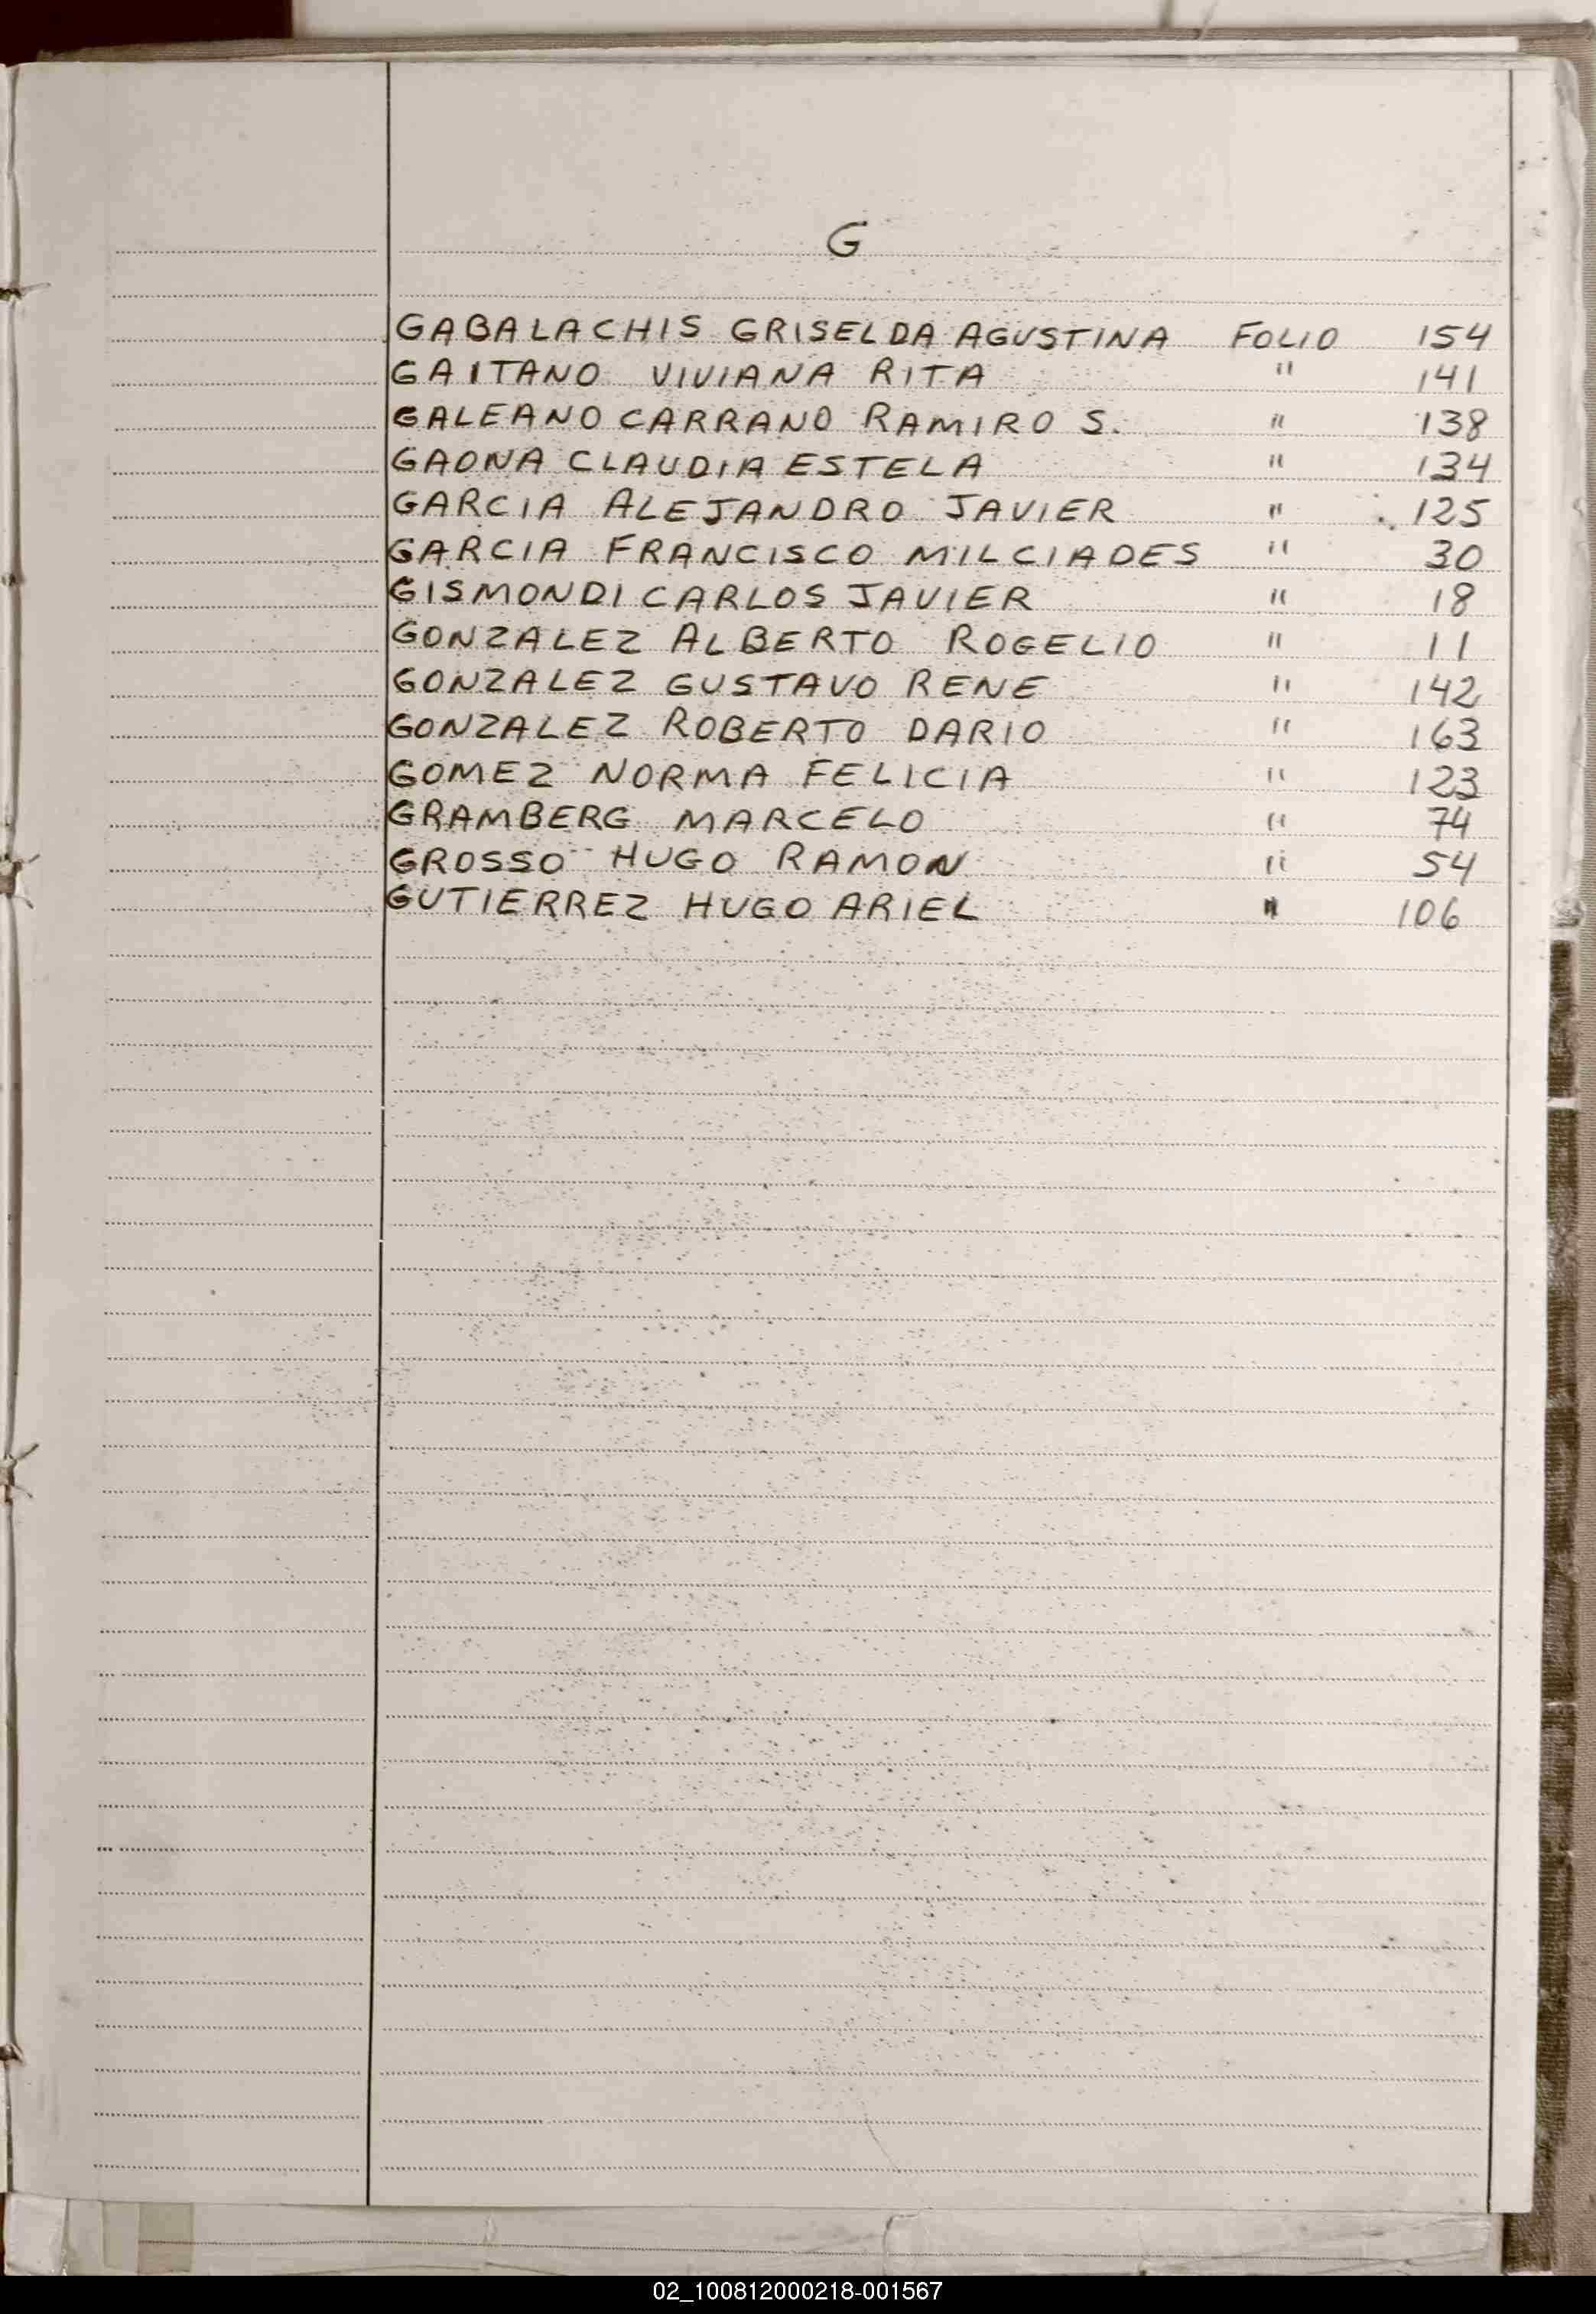 G
GABALACHIS GRISELDA AGUSTINA FOLIO 154
GAITANO VIVIANA RITA " 141
GALEANO CARRANO RAMIRO S. " 138
GAONA CLAUDIA ESTELA " 134
GARCIA ALEJANDRO JAVIER " 125
GARCIA FRANCISCO MILCIADES " 30
GISMONDI CARLOS JAVIER " 18
GONZALEZ ALBERTO ROGELIO " 11
GONZALEZ GUSTAVO RENE " 142
GONZALEZ ROBERTO DARIO " 163
GOMEZ NORMA FELICIA " 123
GRAMBERG MARCELO " 74
GROSSO HUGO RAMON " 54
GUTIERREZ HUGO ARIEL " 106
02_100812000218-001567